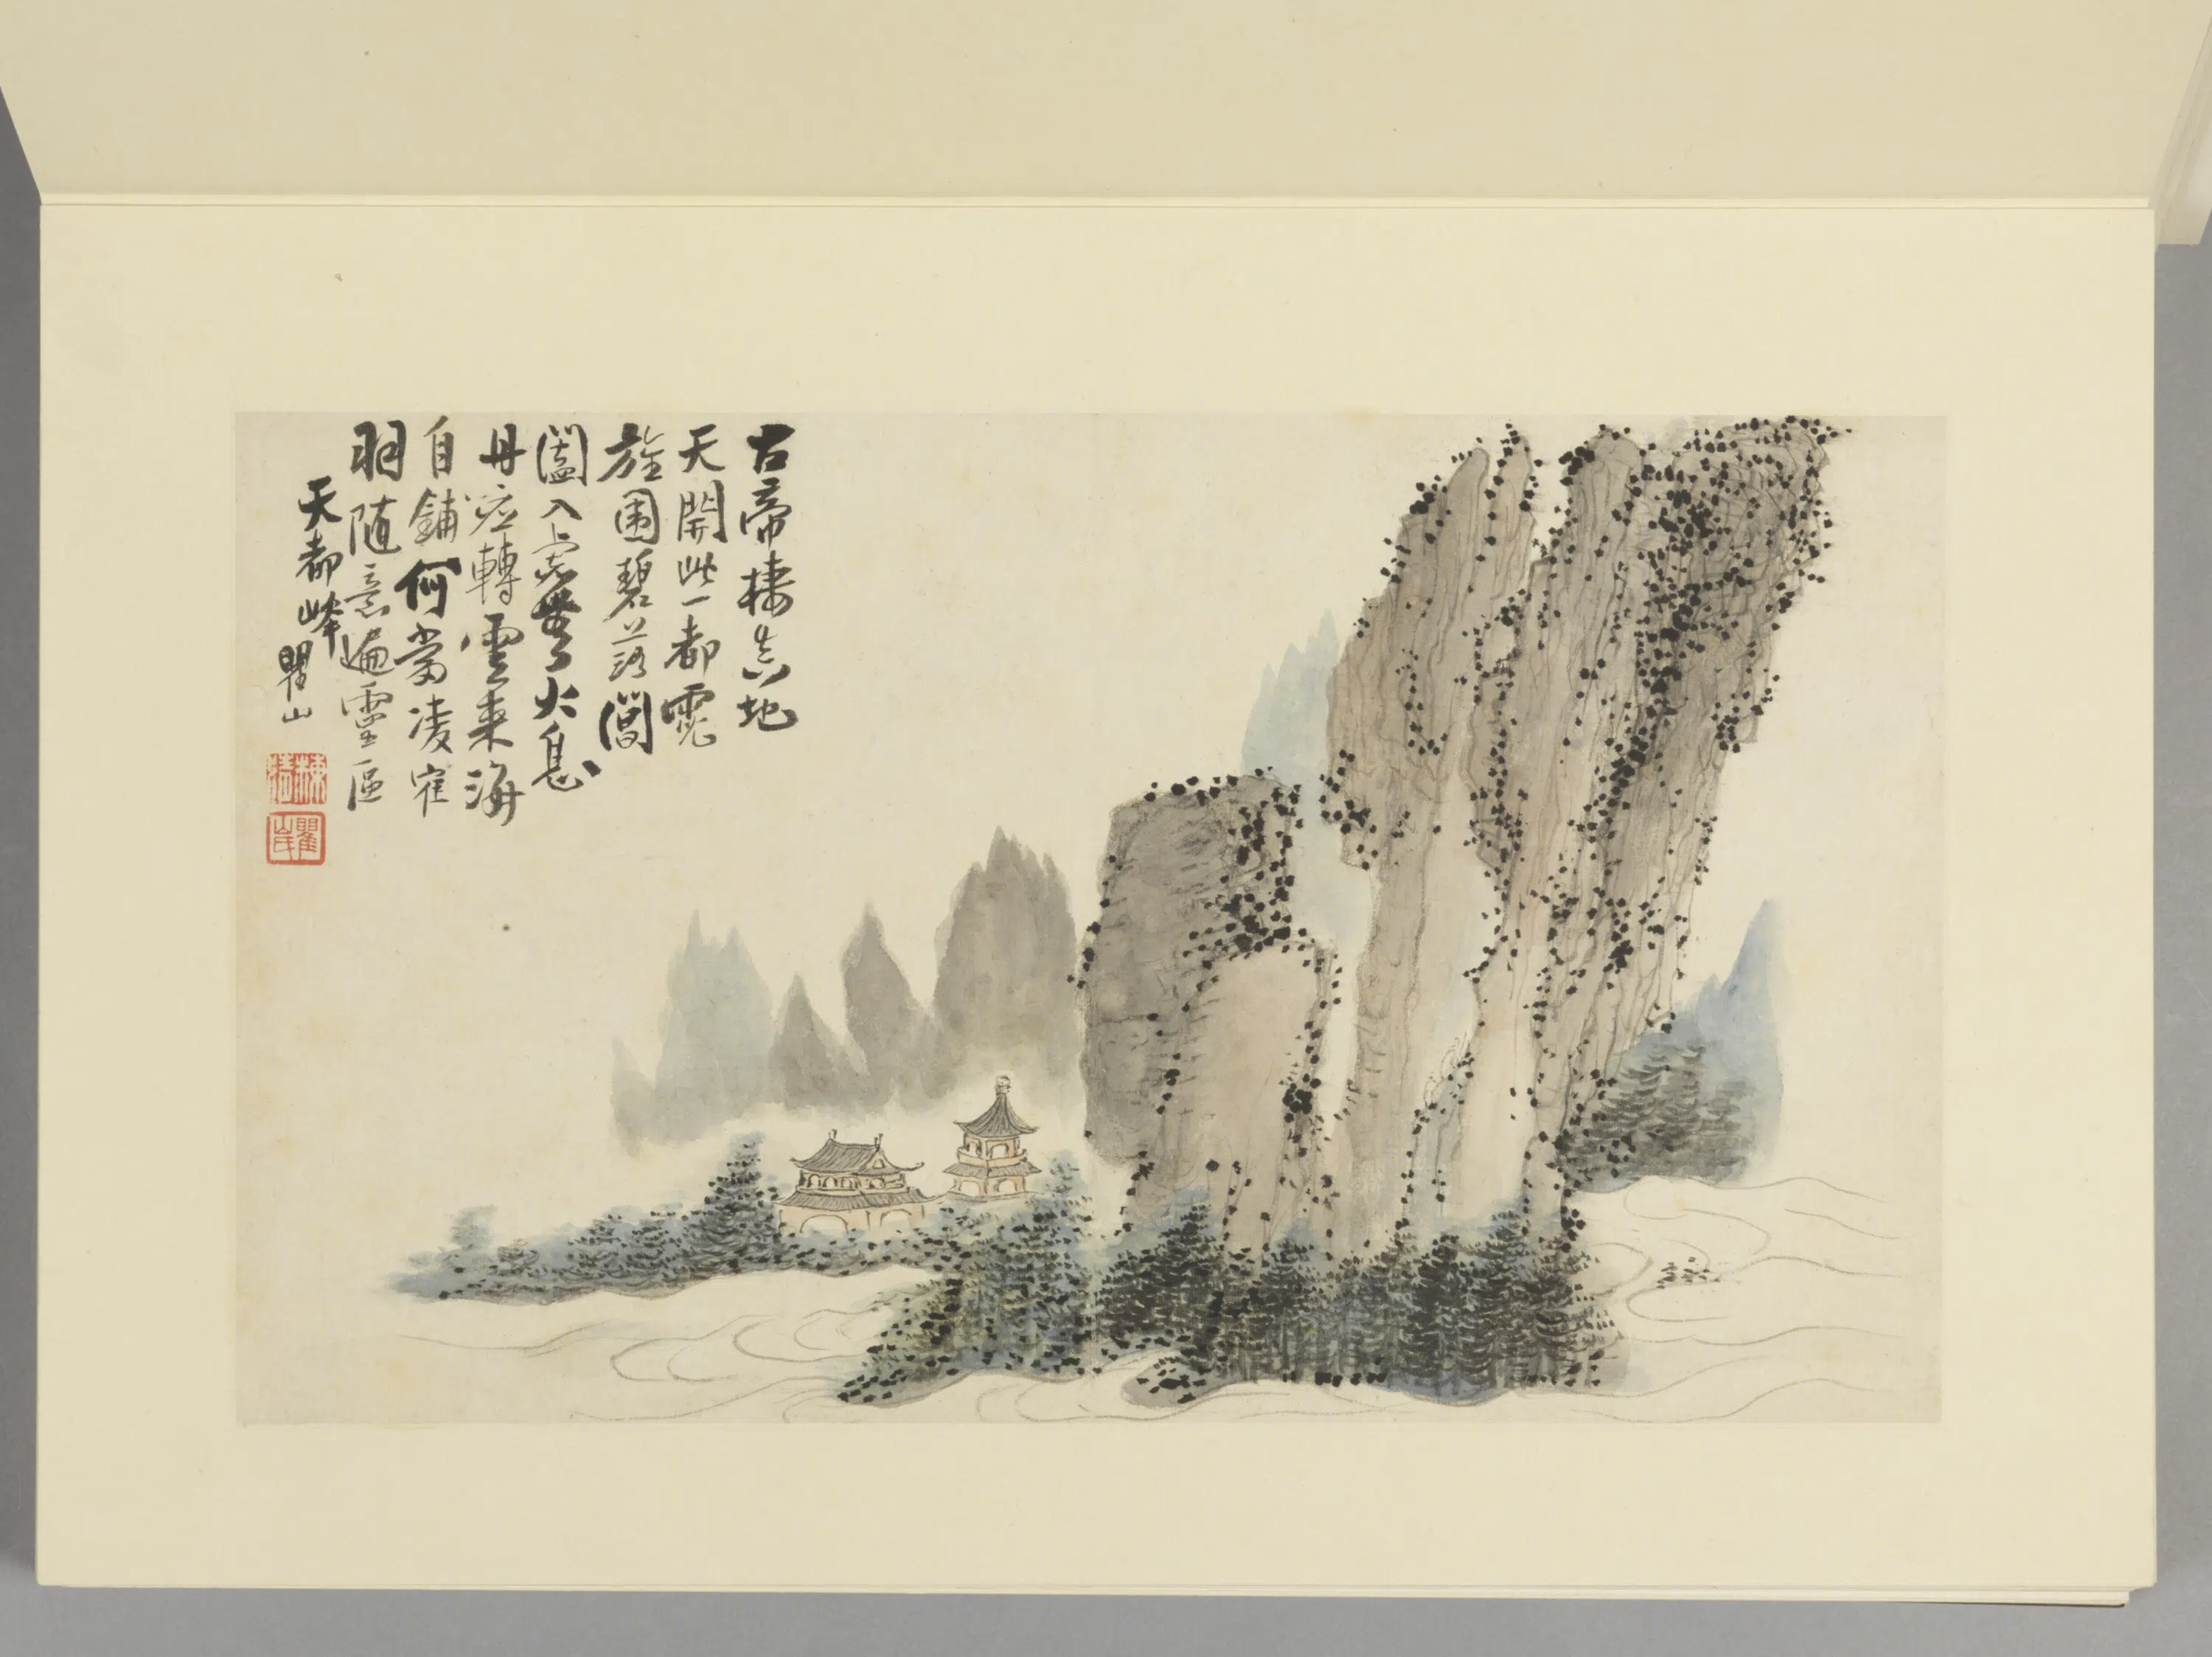 古帝棲真地
天開此一都霓
旌圍碧落閶
闔入虛無火息
丹應轉雲來海
自鋪何當凌寉
羽隨意遍靈區
天都峰
瞿山